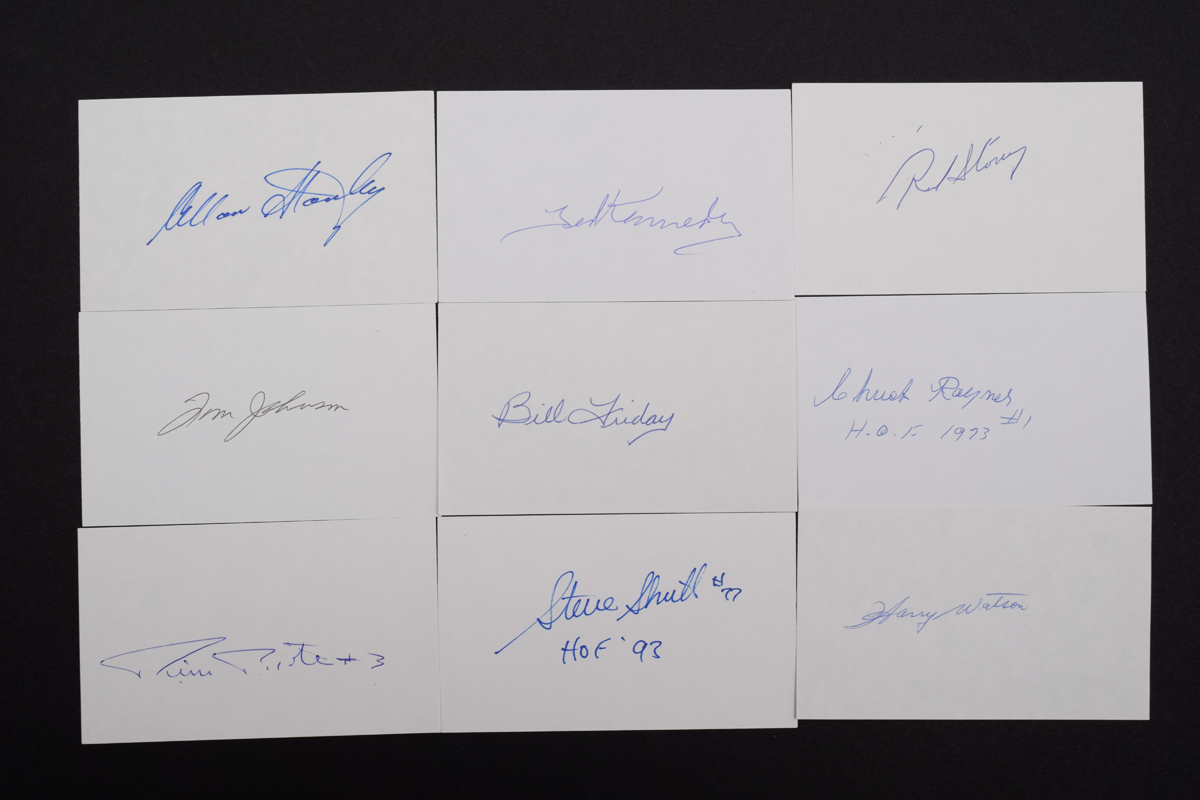 Allan Stanley
Ted Kennedy
Red Storey
Tom Johnson
Bill Friday
Chuck Rayner #1
H.O.F. 1973
Pierre Pilote #3
Steve Shutt #22
HOF '93
Harry Watson